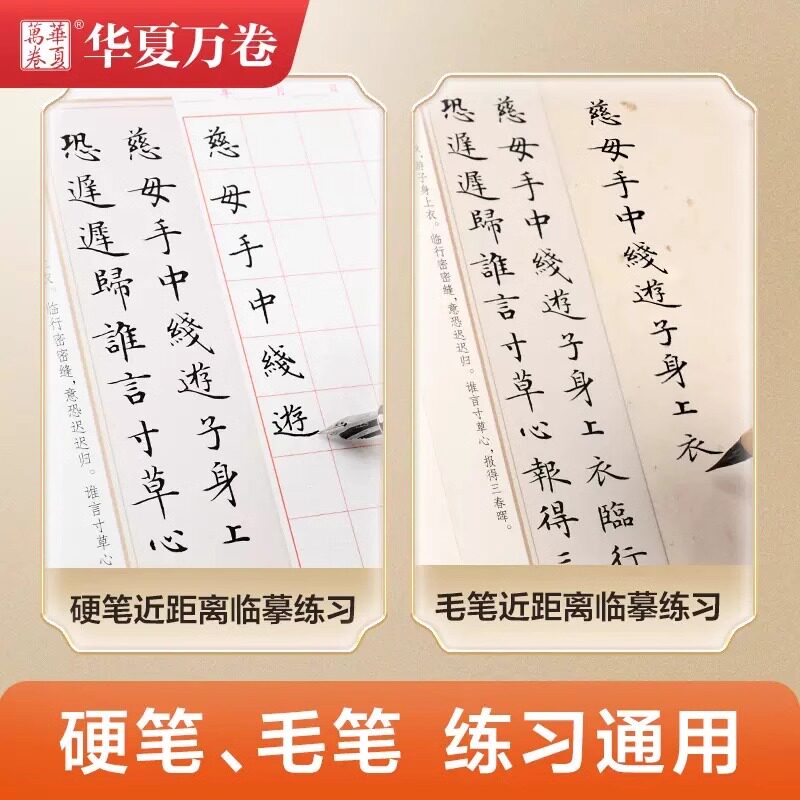 華夏
萬卷
®
华夏万卷
年 月 日
慈母手中綫遊
慈母手中綫遊子身上
恐遲遲歸誰言寸草心
衣。临行密密缝，意恐迟迟归。谁言寸草心
硬笔近距离临摹练习
慈母手中綫遊子身上衣
慈母手中綫遊子身上衣臨行
恐遲遲歸誰言寸草心報得三
游子身上衣。临行密密缝，意恐迟迟归。谁言寸草心，报得三春晖。
毛笔近距离临摹练习
硬笔、毛笔 练习通用